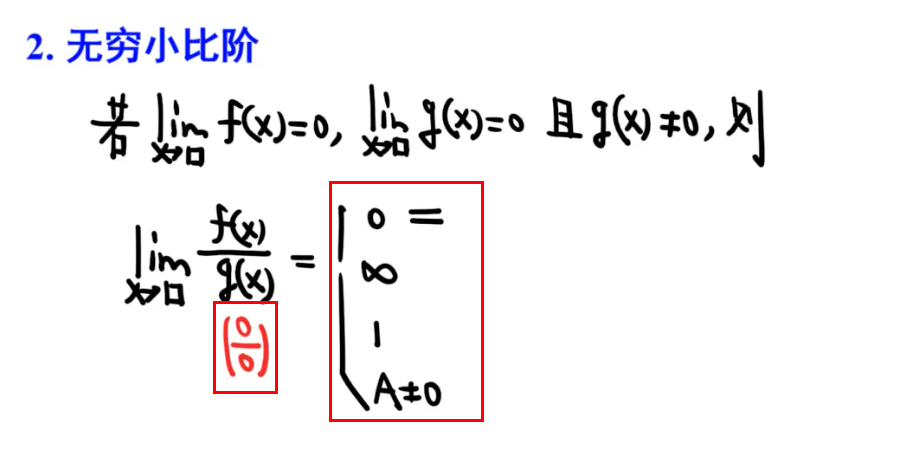 2. 无穷小比阶
若 lim x→□ f(x)=0, lim x→□ g(x)=0 且 g(x)≠0, 则
lim x→□ f(x)/g(x) = { 0 =
∞
(0/0)
1
A≠0